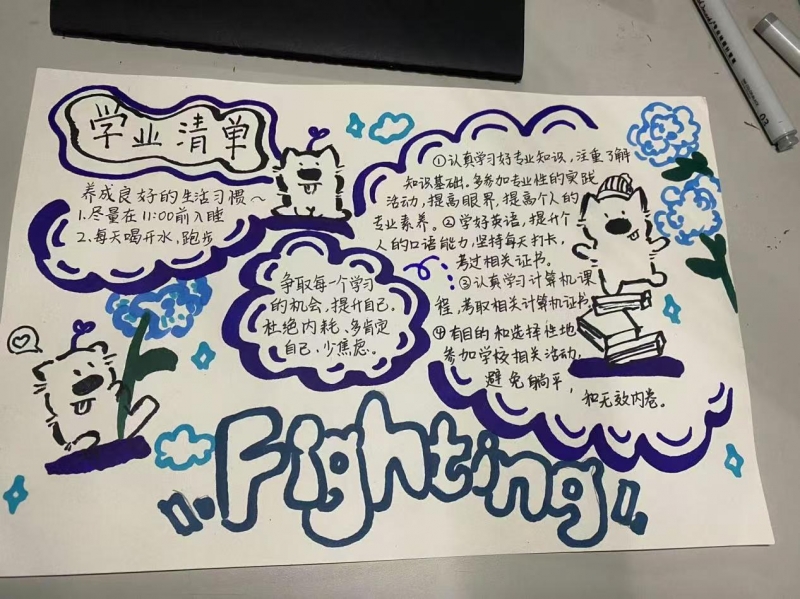 学业清单
养成良好的生活习惯~
1.尽量在11:00前入睡
2.每天喝开水,跑步
争取每一个学习
的机会,提升自己.
杜绝内耗、多肯定
自己、少焦虑。
①认真学习好专业知识,注重了解
知识基础。多参加专业性的实践
活动,提高眼界,提高个人的
专业素养。②学好英语,提升个
人的口语能力,坚持每天打卡,
考过相关证书。
③认真学习计算机课
程,考取相关计算机证书。
④有目的和选择性地
参加学校相关活动,
避免躺平,
和无效内卷。
Fighting